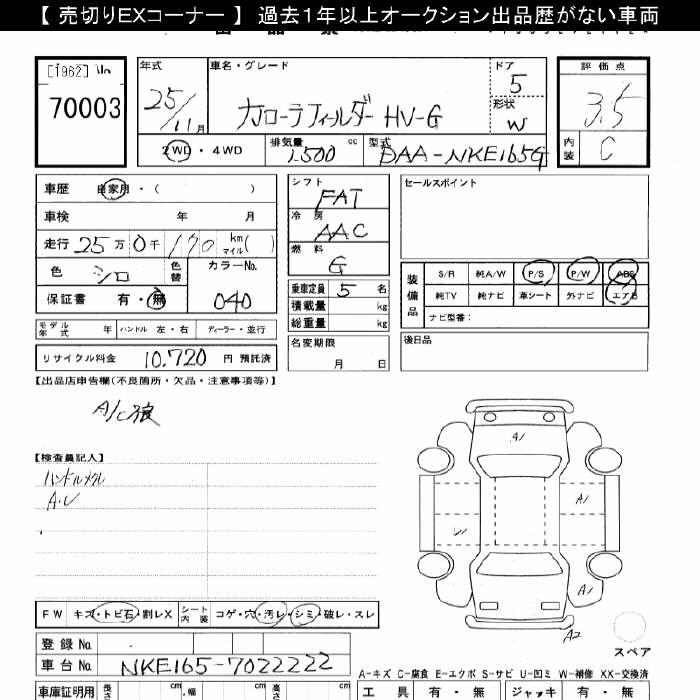 【 売切りEXコーナー 】 過去1年以上オークション出品歴がない車両
[1962] No
70003
年式
25/11月
車名・グレード
カローラフィールダー HV-G
ドア
5
形状
W
評価点
3.5
内装
C
2WD・4WD
排気量
1,500 cc
型式
DAA-NKE165G
車歴 自家用・( )
車検 年 月
走行 25万0千170 km マイル( )
色 シロ 色替
カラーNo.
040
保証書 有・無
モデル年式 年 ハンドル 左・右 ディーラー・並行
リサイクル料金 10,720 円 預託済
シフト
FAT
冷房
AAC
燃料
G
乗車定員 5 名
積載量 kg
総重量 kg
名変期限
月 日
セールスポイント
装備品
S/R 純A/W P/S P/W ABS
純TV 純ナビ 革シート 外ナビ エアB
ナビ型番:
後日品
【出品店申告欄(不良箇所・欠品・注意事項等)】
A/C
【検査員記入】
ハンドルメクレ
A・U
A1
A1
U
A1
A2
スペア
FW キズ・トビ石・割レX シート内装 コゲ・穴・汚レ・シミ・破レ・スレ
登録No.
車台No. NKE165-7022222
A-キズ C-腐食 E-エクボ S-サビ U-凹ミ W-補修 XX-交換済
車庫証明用 長さ cm 幅 cm 高さ cm
工具 有・無 ジャッキ 有・無